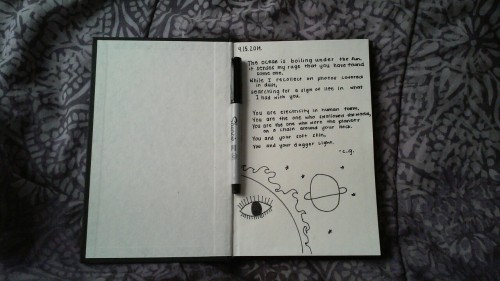 9.15.2014.
The ocean is boiling under the sun
in
my rage that you have found
some one,
While I recollect on photos covered
in dust,
Searching for a sign of life in what
I had with you.
You are electricity in human form,
You are the one who swallowed
You are the one who wore the planets
on a chain around your neck.
You and your soft skin,
You and your dagger
-c.g.